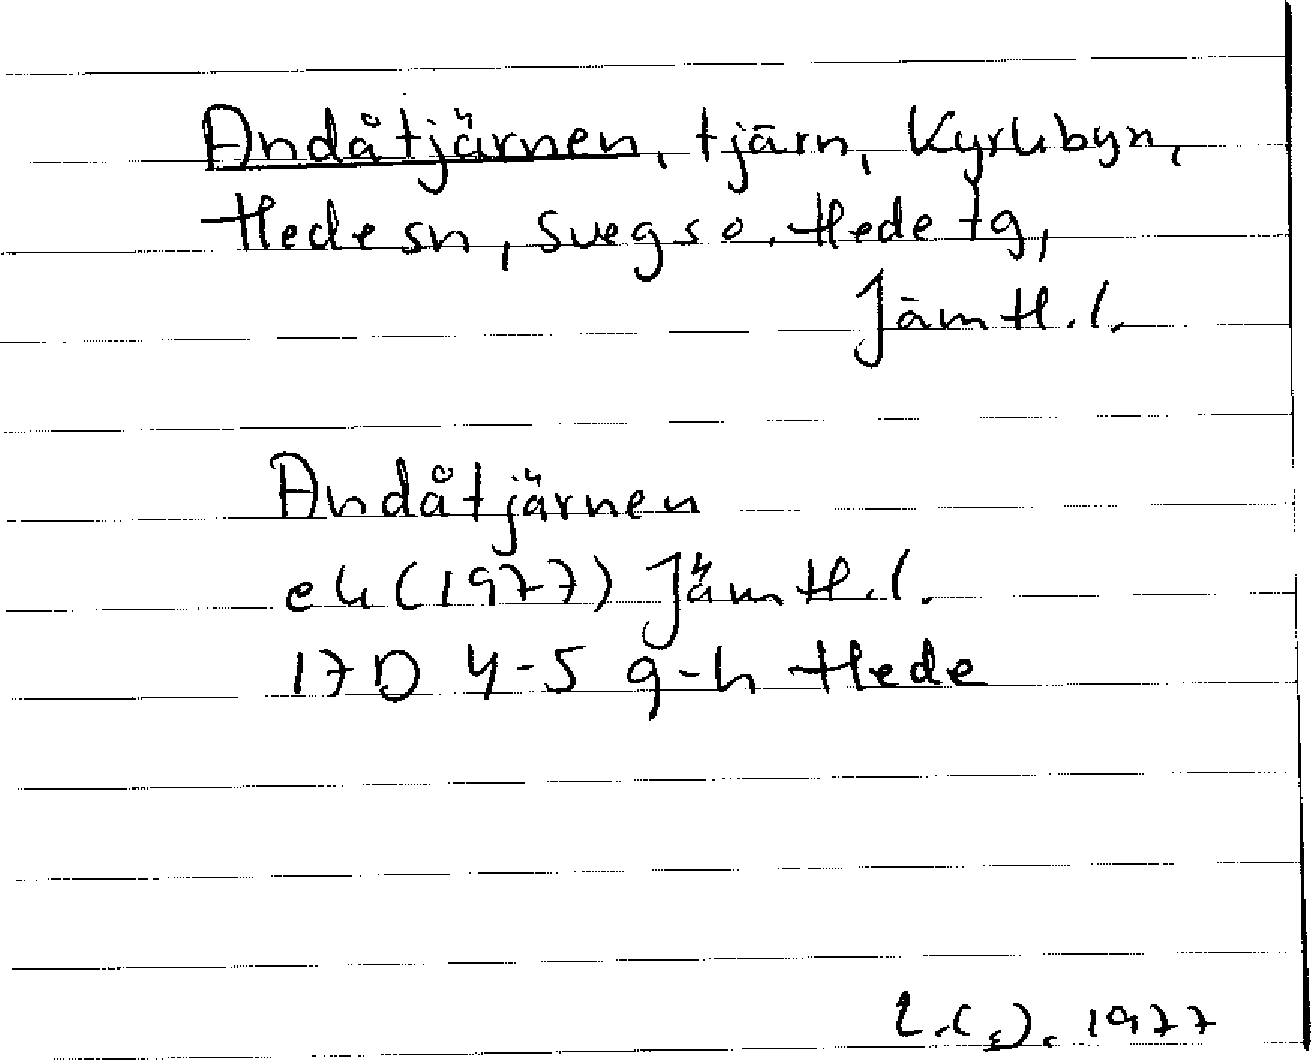 Andåtjärnen, tjärn, Kyrkbyn,
Hede sn, Svegs o. Hede tg,
Jämtl. l.
Andåtjärnen
ek (1977) Jämtl. l.
17D 4-5 g-h Hede
1977